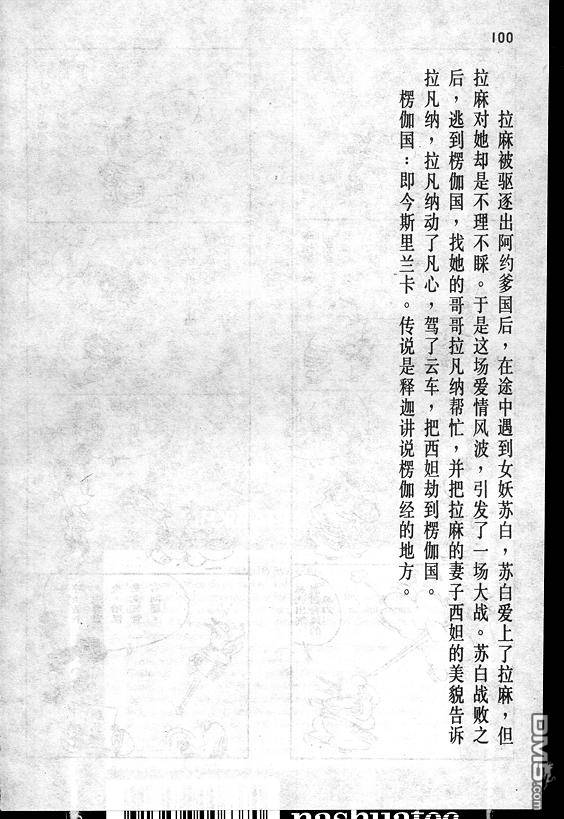 100
拉麻被驱逐出阿约爹国后，在途中遇到女妖苏白，苏白爱上了拉麻，但
拉麻对她却是不理不睬。于是这场爱情风波，引发了一场大战。苏白战败之
后，逃到楞伽国，找她的哥哥拉凡纳帮忙，并把拉麻的妻子西妲的美貌告诉
拉凡纳，拉凡纳动了凡心，驾了云车，把西妲劫到楞伽国。
楞伽国：即今斯里兰卡。传说是释迦讲说楞伽经的地方。
DM5.com